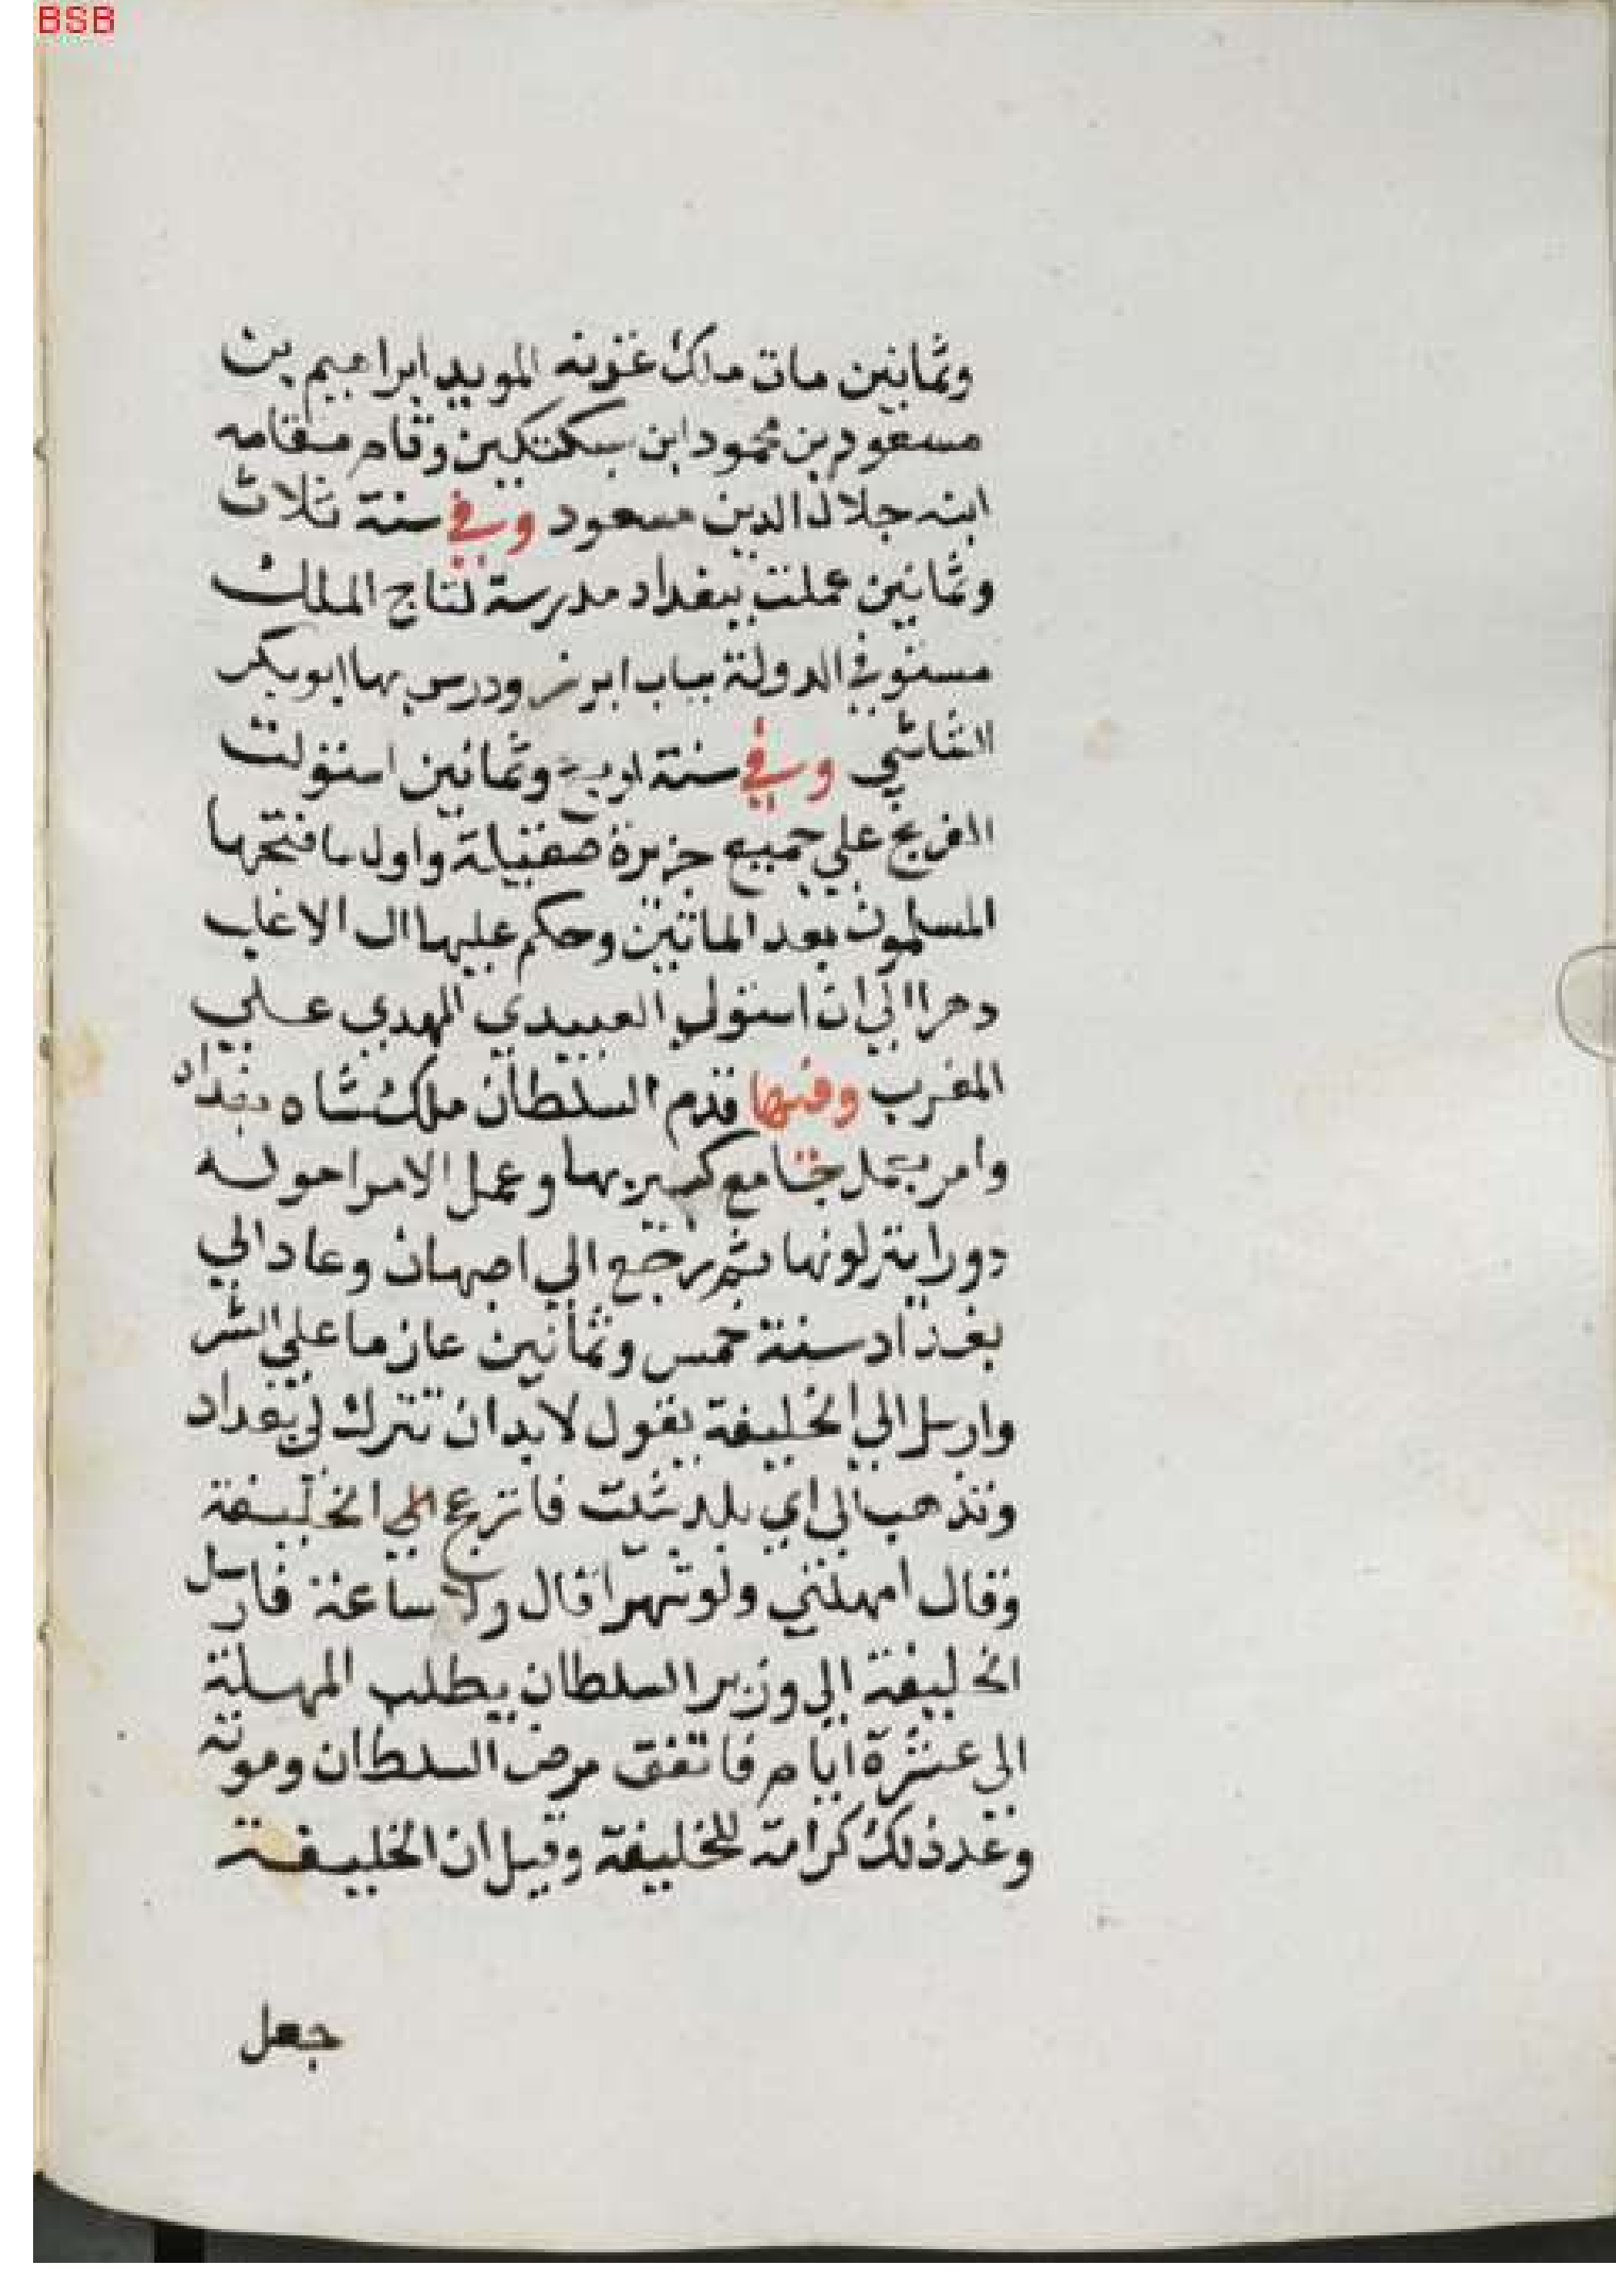 BSB
وثمانين مات ملك غزنه المويد ابراهيم بن
مسعود بن محمود ابن سبكتكين وقام مقامه
ابنه جلال الدين مسعود وفي سنة ثلاث
وثمانين عملت ببغداد مدرسة لتاج الملك
مستوفي الدولة بباب ابرز ودرس بها ابو بكر
الشاشي وفي سنة اربع وثمانين استولت
الفرنج علي جميع جزيرة صقيلة واول ما فتحها
المسلمون بعد الماتين وحكم عليها ال الاغلب
دهرا الي ان استولي العبيدي المهدي علي
المغرب وفيها قدم السلطان ملك شاه بغداد
وامر بعمل جامع كبير بها وعمل الامرا حوله
دورا ينزلونها ثم رجع الي اصبهان وعاد الي
بغداد سنة خمس وثمانين عازما علي الشر
وارسل الي الخليفة يقول لابد ان تترك لي بغداد
وتذهب الي اي بلد شئت فانزعج الخليفة
وقال امهلني ولو شهرا قال ولا ساعة فارسل
الخليفة الي وزير السلطان يطلب المهلة
الي عشرة ايام فاتفق مرض السلطان وموته
وعد ذلك كرامة للخليفة وقيل ان الخليفة
جعل